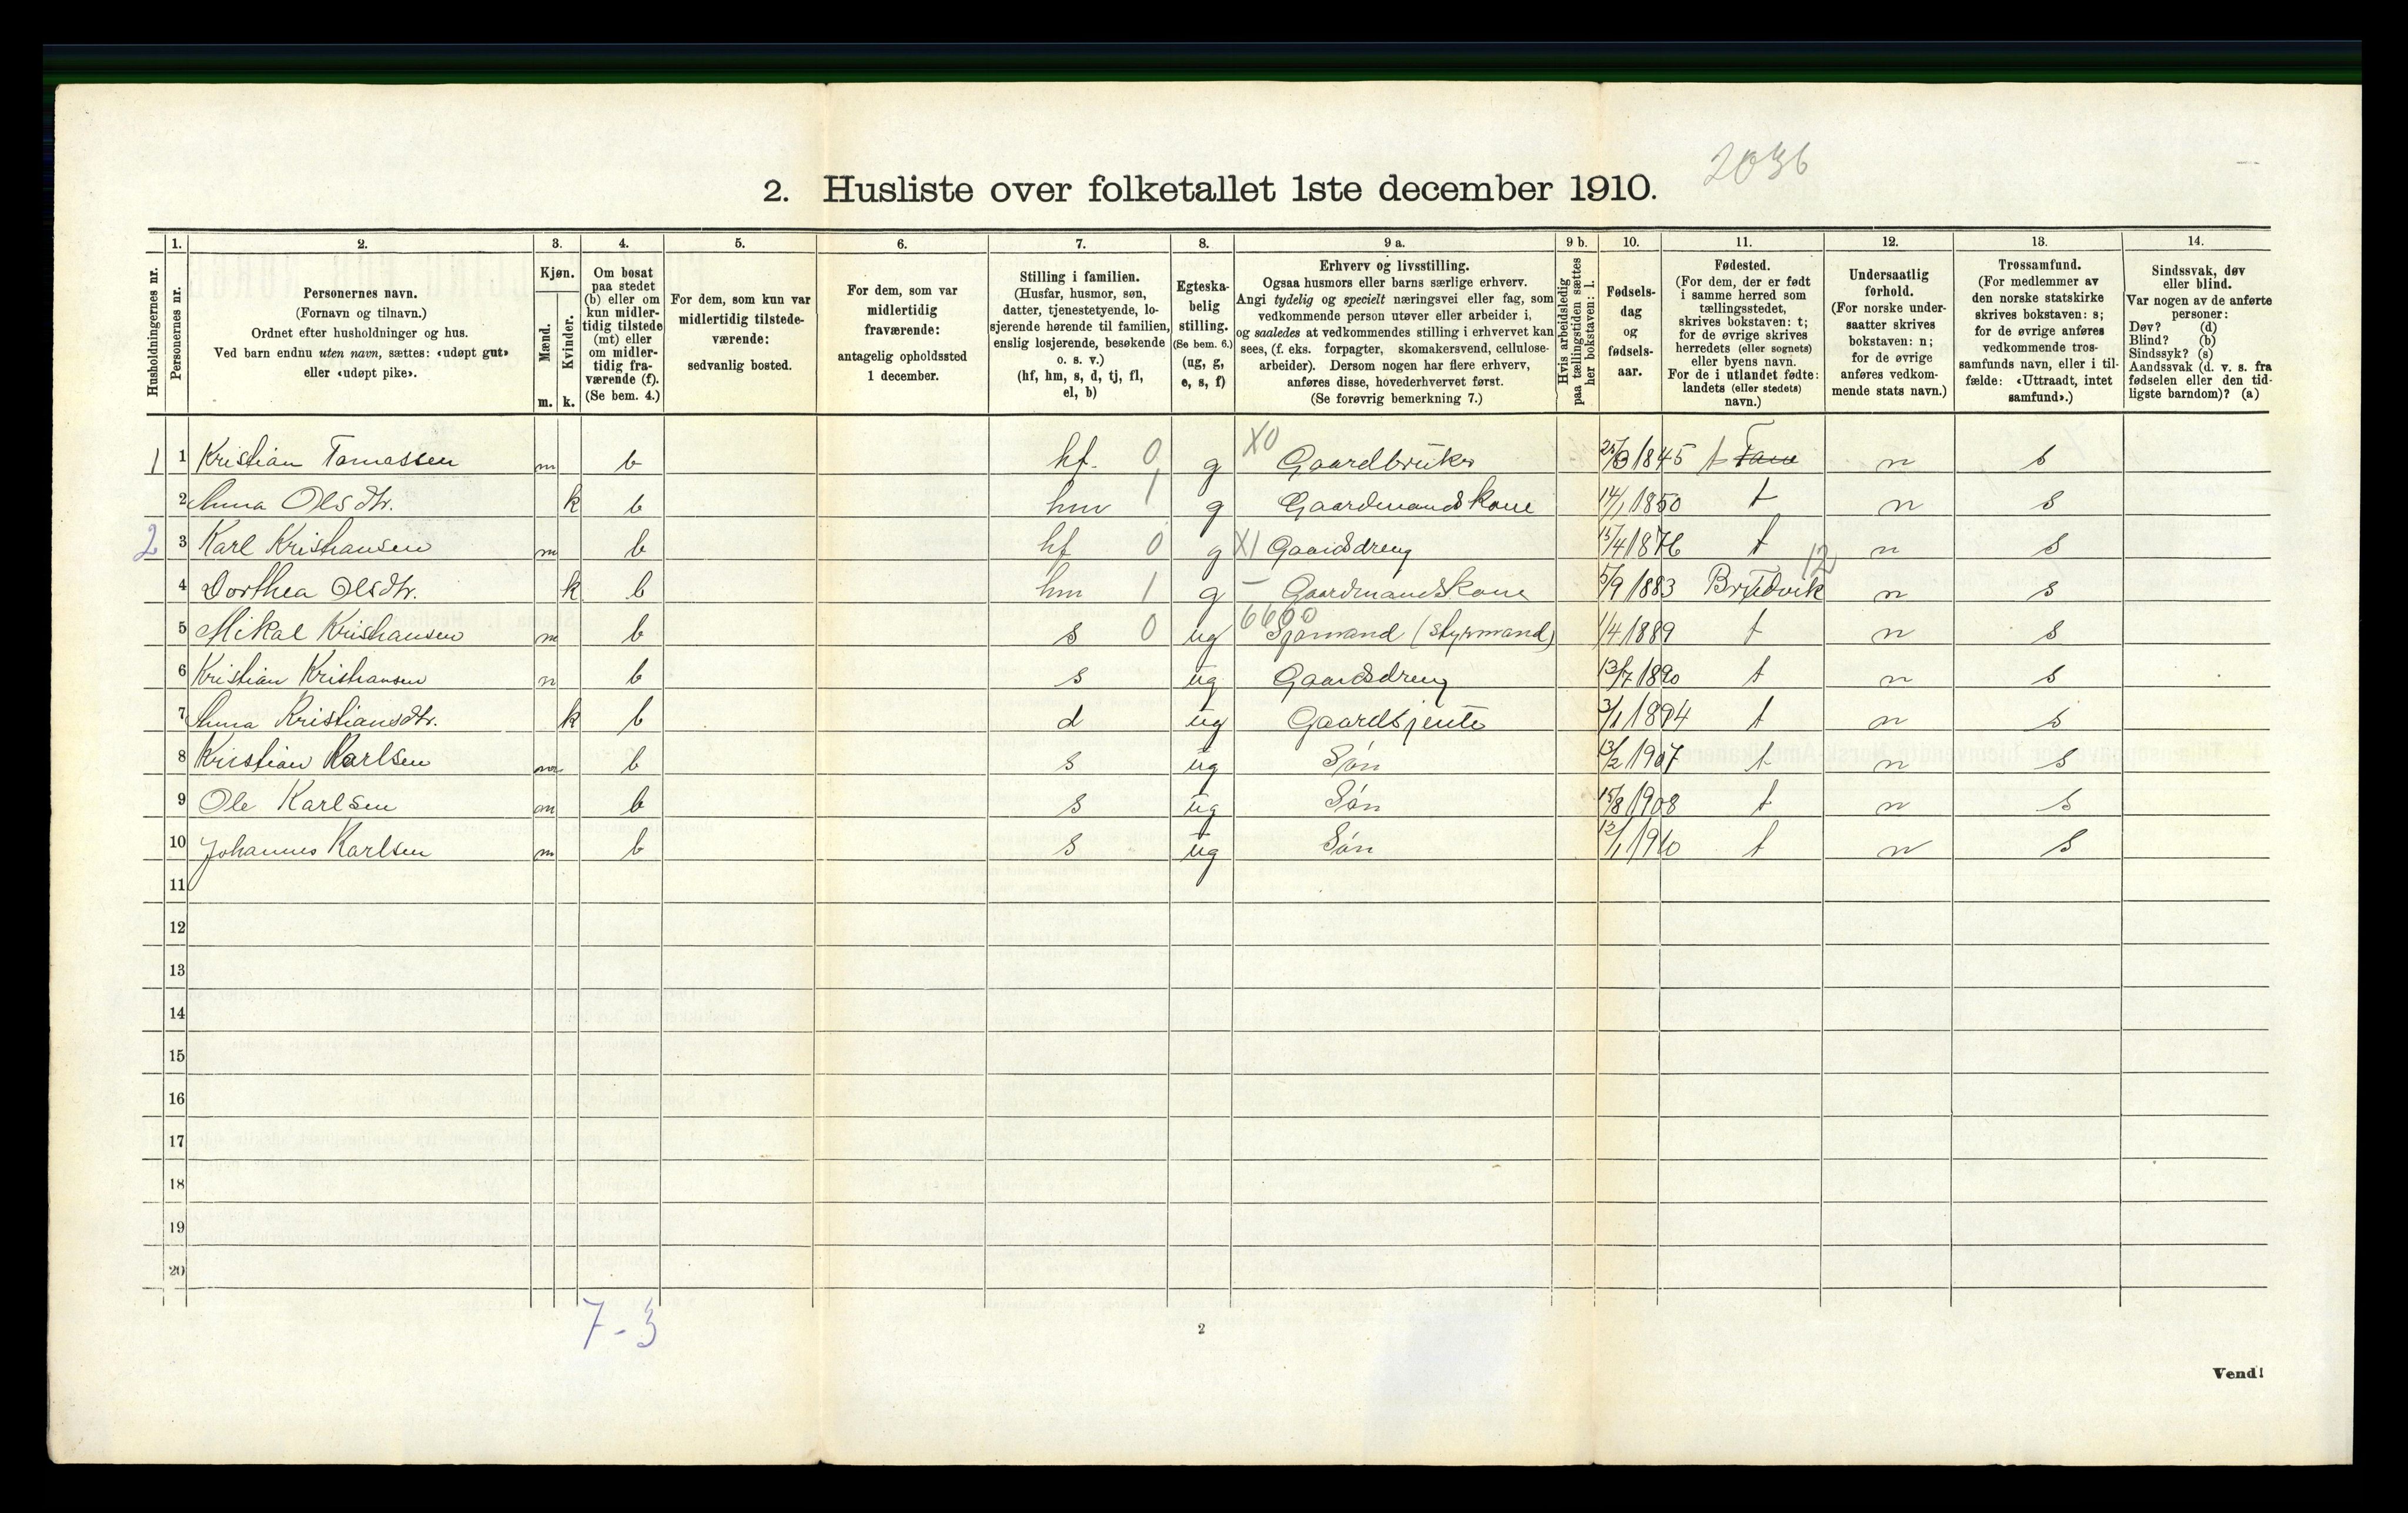 2036
2. Husliste over folketallet 1ste december 1910.
Husholdningernes nr.
1. Personernes nr.
2. Personernes navn.
(Fornavn og tilnavn.)
Ordnet efter husholdninger og hus.
Ved barn endnu uten navn, sættes: «udøpt gut»
eller «udøpt pike».
3. Kjøn.
Mænd. Kvinder.
m. k.
4. Om bosat
paa stedet
(b) eller om
kun midler-
tidig tilstede
(mt) eller
om midler-
tidig fra-
værende (f).
(Se bem. 4.)
5. For dem, som kun var
midlertidig tilstede-
værende:
sedvanlig bosted.
6. For dem, som var
midlertidig
fraværende:
antagelig opholdssted
1 december.
7. Stilling i familien.
(Husfar, husmor, søn,
datter, tjenestetyende, lo-
sjerende hørende til familien,
enslig losjerende, besøkende
o. s. v.)
(hf, hm, s, d, tj, fl,
el, b)
8. Egteska-
belig
stilling.
(Se bem. 6.)
(ug, g,
e, s, f)
9 a. Erhverv og livsstilling.
Ogsaa husmors eller barns særlige erhverv.
Angi tydelig og specielt næringsvei eller fag, som
vedkommende person utøver eller arbeider i,
og saaledes at vedkommendes stilling i erhvervet kan
sees, (f. eks. forpagter, skomakersvend, cellulose-
arbeider). Dersom nogen har flere erhverv,
anføres disse, hovederhvervet først.
(Se forøvrig bemerkning 7.)
9 b. Hvis arbeidsledig
paa tællingstiden sættes
her bokstaven: l.
10. Fødsels-
dag
og
fødsels-
aar.
11. Fødested.
(For dem, der er født
i samme herred som
tællingsstedet,
skrives bokstaven: t;
for de øvrige skrives
herredets (eller sognets)
eller byens navn.
For de i utlandet fødte:
landets (eller stedets)
navn.)
12. Undersaatlig
forhold.
(For norske under-
saatter skrives
bokstaven: n;
for de øvrige
anføres vedkom-
mende stats navn.)
13. Trossamfund.
(For medlemmer av
den norske statskirke
skrives bokstaven: s;
for de øvrige anføres
vedkommende tros-
samfunds navn, eller i til-
fælde: «Uttraadt, intet
samfund».)
14. Sindssvak, døv
eller blind.
Var nogen av de anførte
personer:
Døv? (d)
Blind? (b)
Sindssyk? (s)
Aandssvak (d. v. s. fra
fødselen eller den tid-
ligste barndom)? (a)
1 1 Kristian Tomassen m b hf. 0 g X0 Gaardbruker 1845 t Fane n s
2 Anna Olsdtr. k b hm 1 g Gaardmandskone 14/1 1850 t n s
2 3 Karl Kristiansen m b hf 0 g X1 Gaardsdreng 15/4 1876 t n s
4 Dorthea Olsdtr. k b hm 1 g – Gaardmandskone 5/9 1883 Brudvik 12 n s
5 Mikal Kristiansen m b s 0 ug 6600 Sjømand (styrmand) 1/4 1889 t n s
6 Kristian Kristiansen m b s ug Gaardsdreng 13/7 1890 t n s
7 Anna Kristiansdtr. k b d ug Gaardsjente 3/1 1894 t n s
8 Kristian Karlsen m b s ug Søn 13/2 1907 t n s
9 Ole Karlsen m b s ug Søn 15/8 1908 t n s
10 Johannes Karlsen m b s ug Søn 1910 t n s
11
12
13
14
15
16
17
18
19
20
7-3
2
Vend!